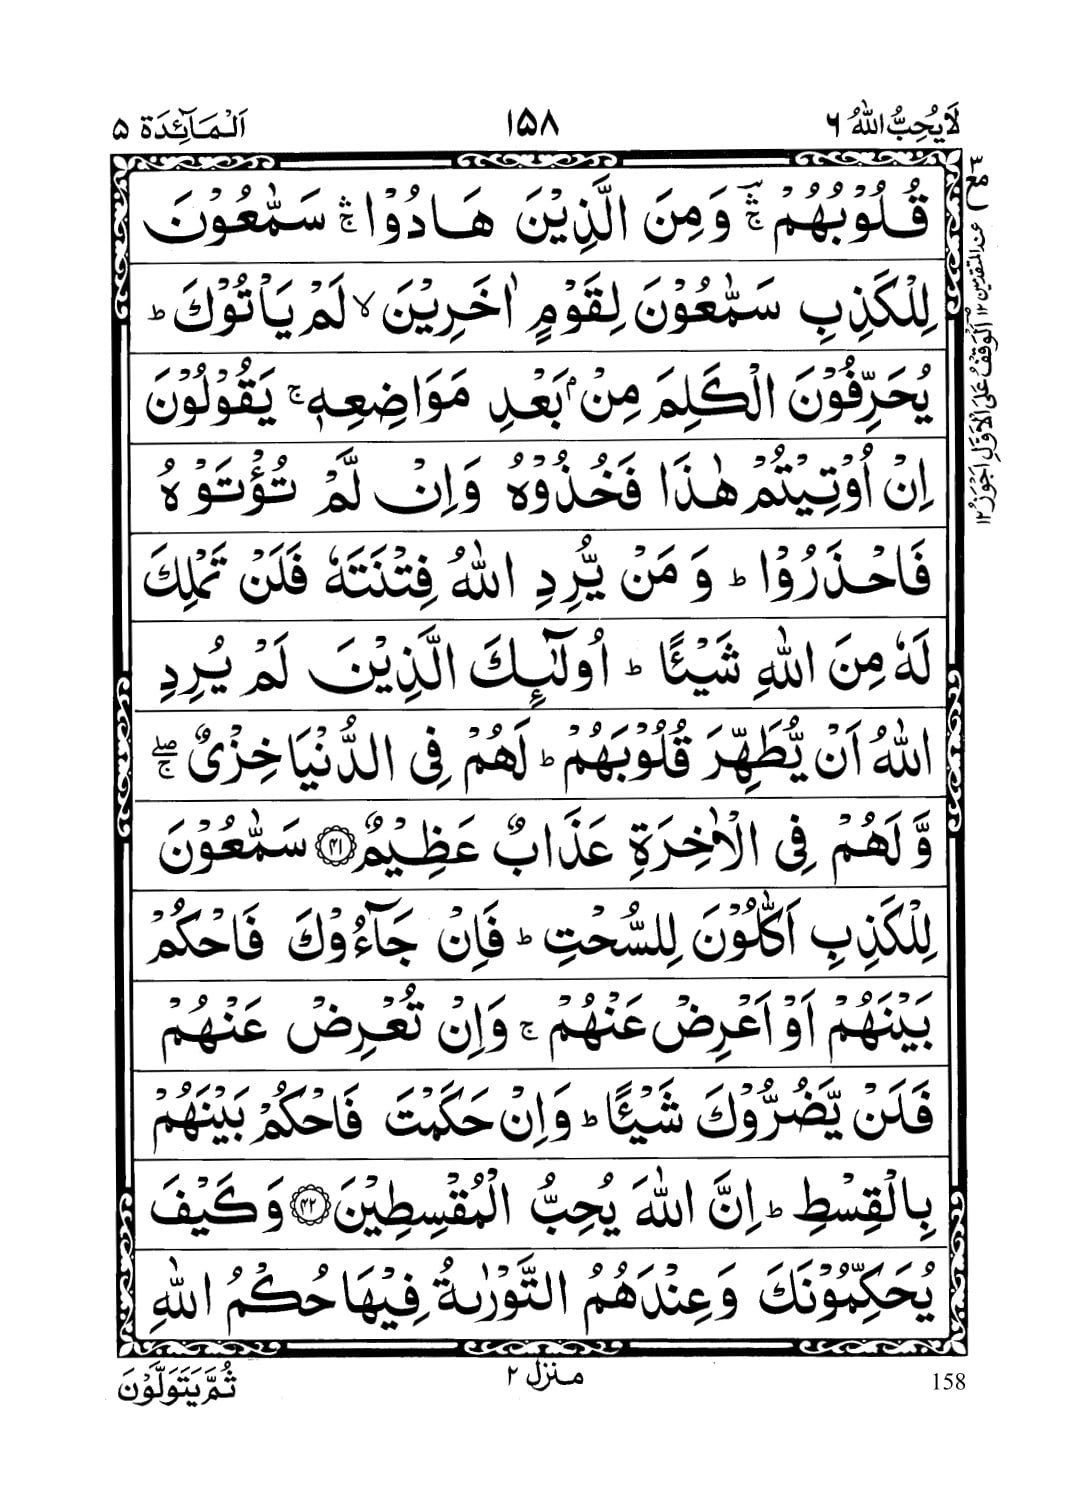 لَا يُحِبُّ اللّٰهُ ۶
۱۵۸
اَلْمَآئِدَة ۵
قُلُوْبُهُمْ ۛۚ وَمِنَ الَّذِيْنَ هَادُوْا ۛۚ سَمّٰعُوْنَ
لِلْكَذِبِ سَمّٰعُوْنَ لِقَوْمٍ اٰخَرِيْنَ ۙ لَمْ يَاْتُوْكَ ؕ
يُحَرِّفُوْنَ الْكَلِمَ مِنْۢ بَعْدِ مَوَاضِعِهٖ ۚ يَقُوْلُوْنَ
اِنْ اُوْتِيْتُمْ هٰذَا فَخُذُوْهُ وَاِنْ لَّمْ تُؤْتَوْهُ
فَاحْذَرُوْا ؕ وَمَنْ يُّرِدِ اللّٰهُ فِتْنَتَهٗ فَلَنْ تَمْلِكَ
لَهٗ مِنَ اللّٰهِ شَيْـًٔا ؕ اُولٰٓئِكَ الَّذِيْنَ لَمْ يُرِدِ
اللّٰهُ اَنْ يُّطَهِّرَ قُلُوْبَهُمْ ؕ لَهُمْ فِى الدُّنْيَا خِزْىٌ ۚۖ
وَّلَهُمْ فِى الْاٰخِرَةِ عَذَابٌ عَظِيْمٌ ﴿۴۱﴾ سَمّٰعُوْنَ
لِلْكَذِبِ اَكّٰلُوْنَ لِلسُّحْتِ ؕ فَاِنْ جَآءُوْكَ فَاحْكُمْ
بَيْنَهُمْ اَوْ اَعْرِضْ عَنْهُمْ ۚ وَاِنْ تُعْرِضْ عَنْهُمْ
فَلَنْ يَّضُرُّوْكَ شَيْـًٔا ؕ وَاِنْ حَكَمْتَ فَاحْكُمْ بَيْنَهُمْ
بِالْقِسْطِ ؕ اِنَّ اللّٰهَ يُحِبُّ الْمُقْسِطِيْنَ ﴿۴۲﴾ وَكَيْفَ
يُحَكِّمُوْنَكَ وَعِنْدَهُمُ التَّوْرٰىةُ فِيْهَا حُكْمُ اللّٰهِ
مع ۳
عند المتقدمين ۱۲
اَلْوَقْفُ عَلَى الْاَوَّلِ اَجْوَزُ ۱۲
منزل ۲
ثُمَّ يَتَوَلَّوْنَ
158